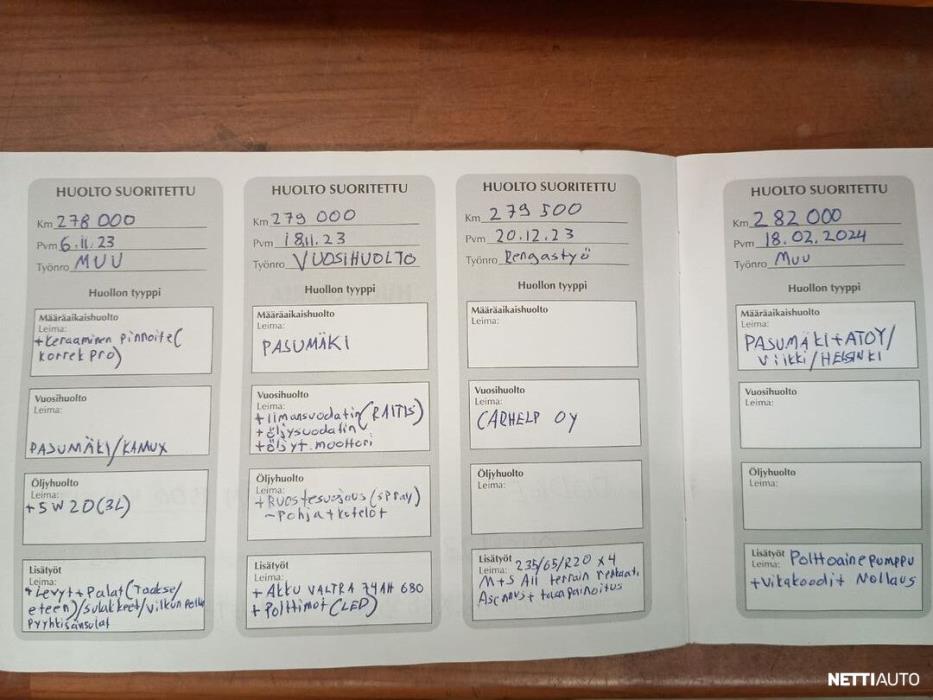 HUOLTO SUORITETTU
Km 278 000
Pvm 6.11.23
Työnro MUU
Huollon tyyppi
Määräaikaishuolto
Leima:
+keraaminen pinnoite(
korrek pro)
Vuosihuolto
Leima:
PASUMÄKI/KAMUX
Öljyhuolto
Leima:
+5W20(3L)
Lisätyöt
Leima:
+Levyt+Palat(Taakse/
eteen)/sulakkeet/vilkun
pyyhkijänsulat
HUOLTO SUORITETTU
Km 279 000
Pvm 18.11.23
Työnro VUOSIHUOLTO
Huollon tyyppi
Määräaikaishuolto
Leima:
PASUMÄKI
Vuosihuolto
Leima:
+ilmansuodatin(RAITIS)
+öljysuodatin
+öljyt.moottori
Öljyhuolto
Leima:
+Ruostesuojaus(spray)
-Pohja+kotelot
Lisätyöt
Leima:
+AKKU VALTRA 74AH 680
+Polttimot(LED)
HUOLTO SUORITETTU
Km 279 500
Pvm 20.12.23
Työnro Rengastyö
Huollon tyyppi
Määräaikaishuolto
Leima:
Vuosihuolto
Leima:
CARHELP OY
Öljyhuolto
Leima:
Lisätyöt 235/65/R20 x4
Leima: M+S All terrain renkaat.
Asennus+tasapainoitus
HUOLTO SUORITETTU
Km 282 000
Pvm 18.02.2024
Työnro Muu
Huollon tyyppi
Määräaikaishuolto
Leima:
PASUMÄKI+ATOY/
Viikki/HELSINKI
Vuosihuolto
Leima:
Öljyhuolto
Leima:
Lisätyöt Polttoainepumppu
Leima:
+Vikakoodit Nollaus
NETTIAUTO